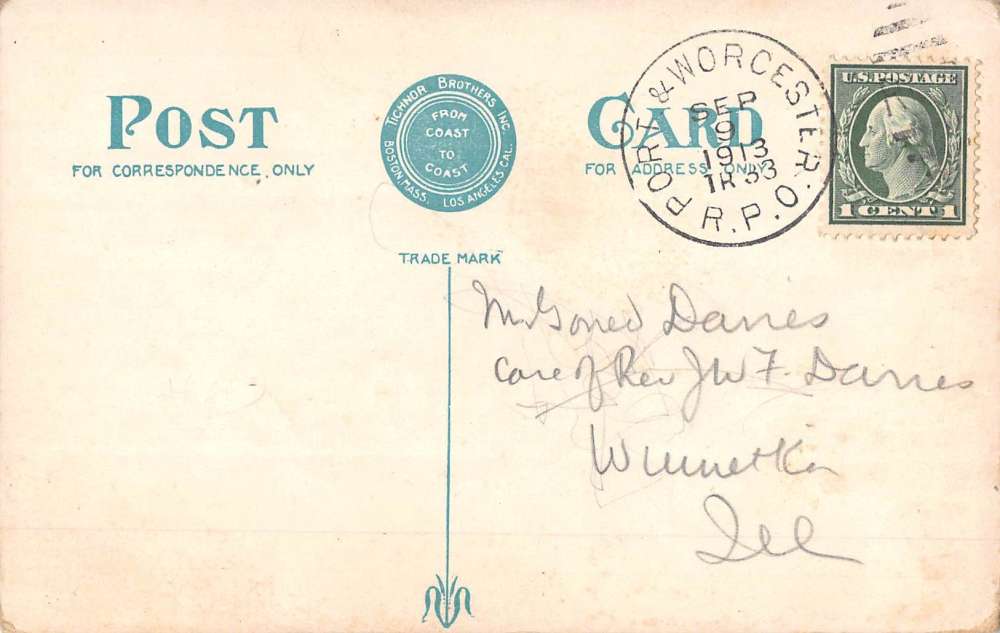 POST CARD
FOR CORRESPONDENCE ONLY
FOR ADDRESS ONLY
TICHNOR BROTHERS INC.
BOSTON, MASS. LOS ANGELES CAL.
FROM
COAST
TO
COAST
TRADE MARK
PORT & WORCESTER. R.P.O.
SEP
9
1913
TR 33
U.S. POSTAGE
1 CENT 1
Davies
Care of Rev J W F. Davies
Winnetka
Ill